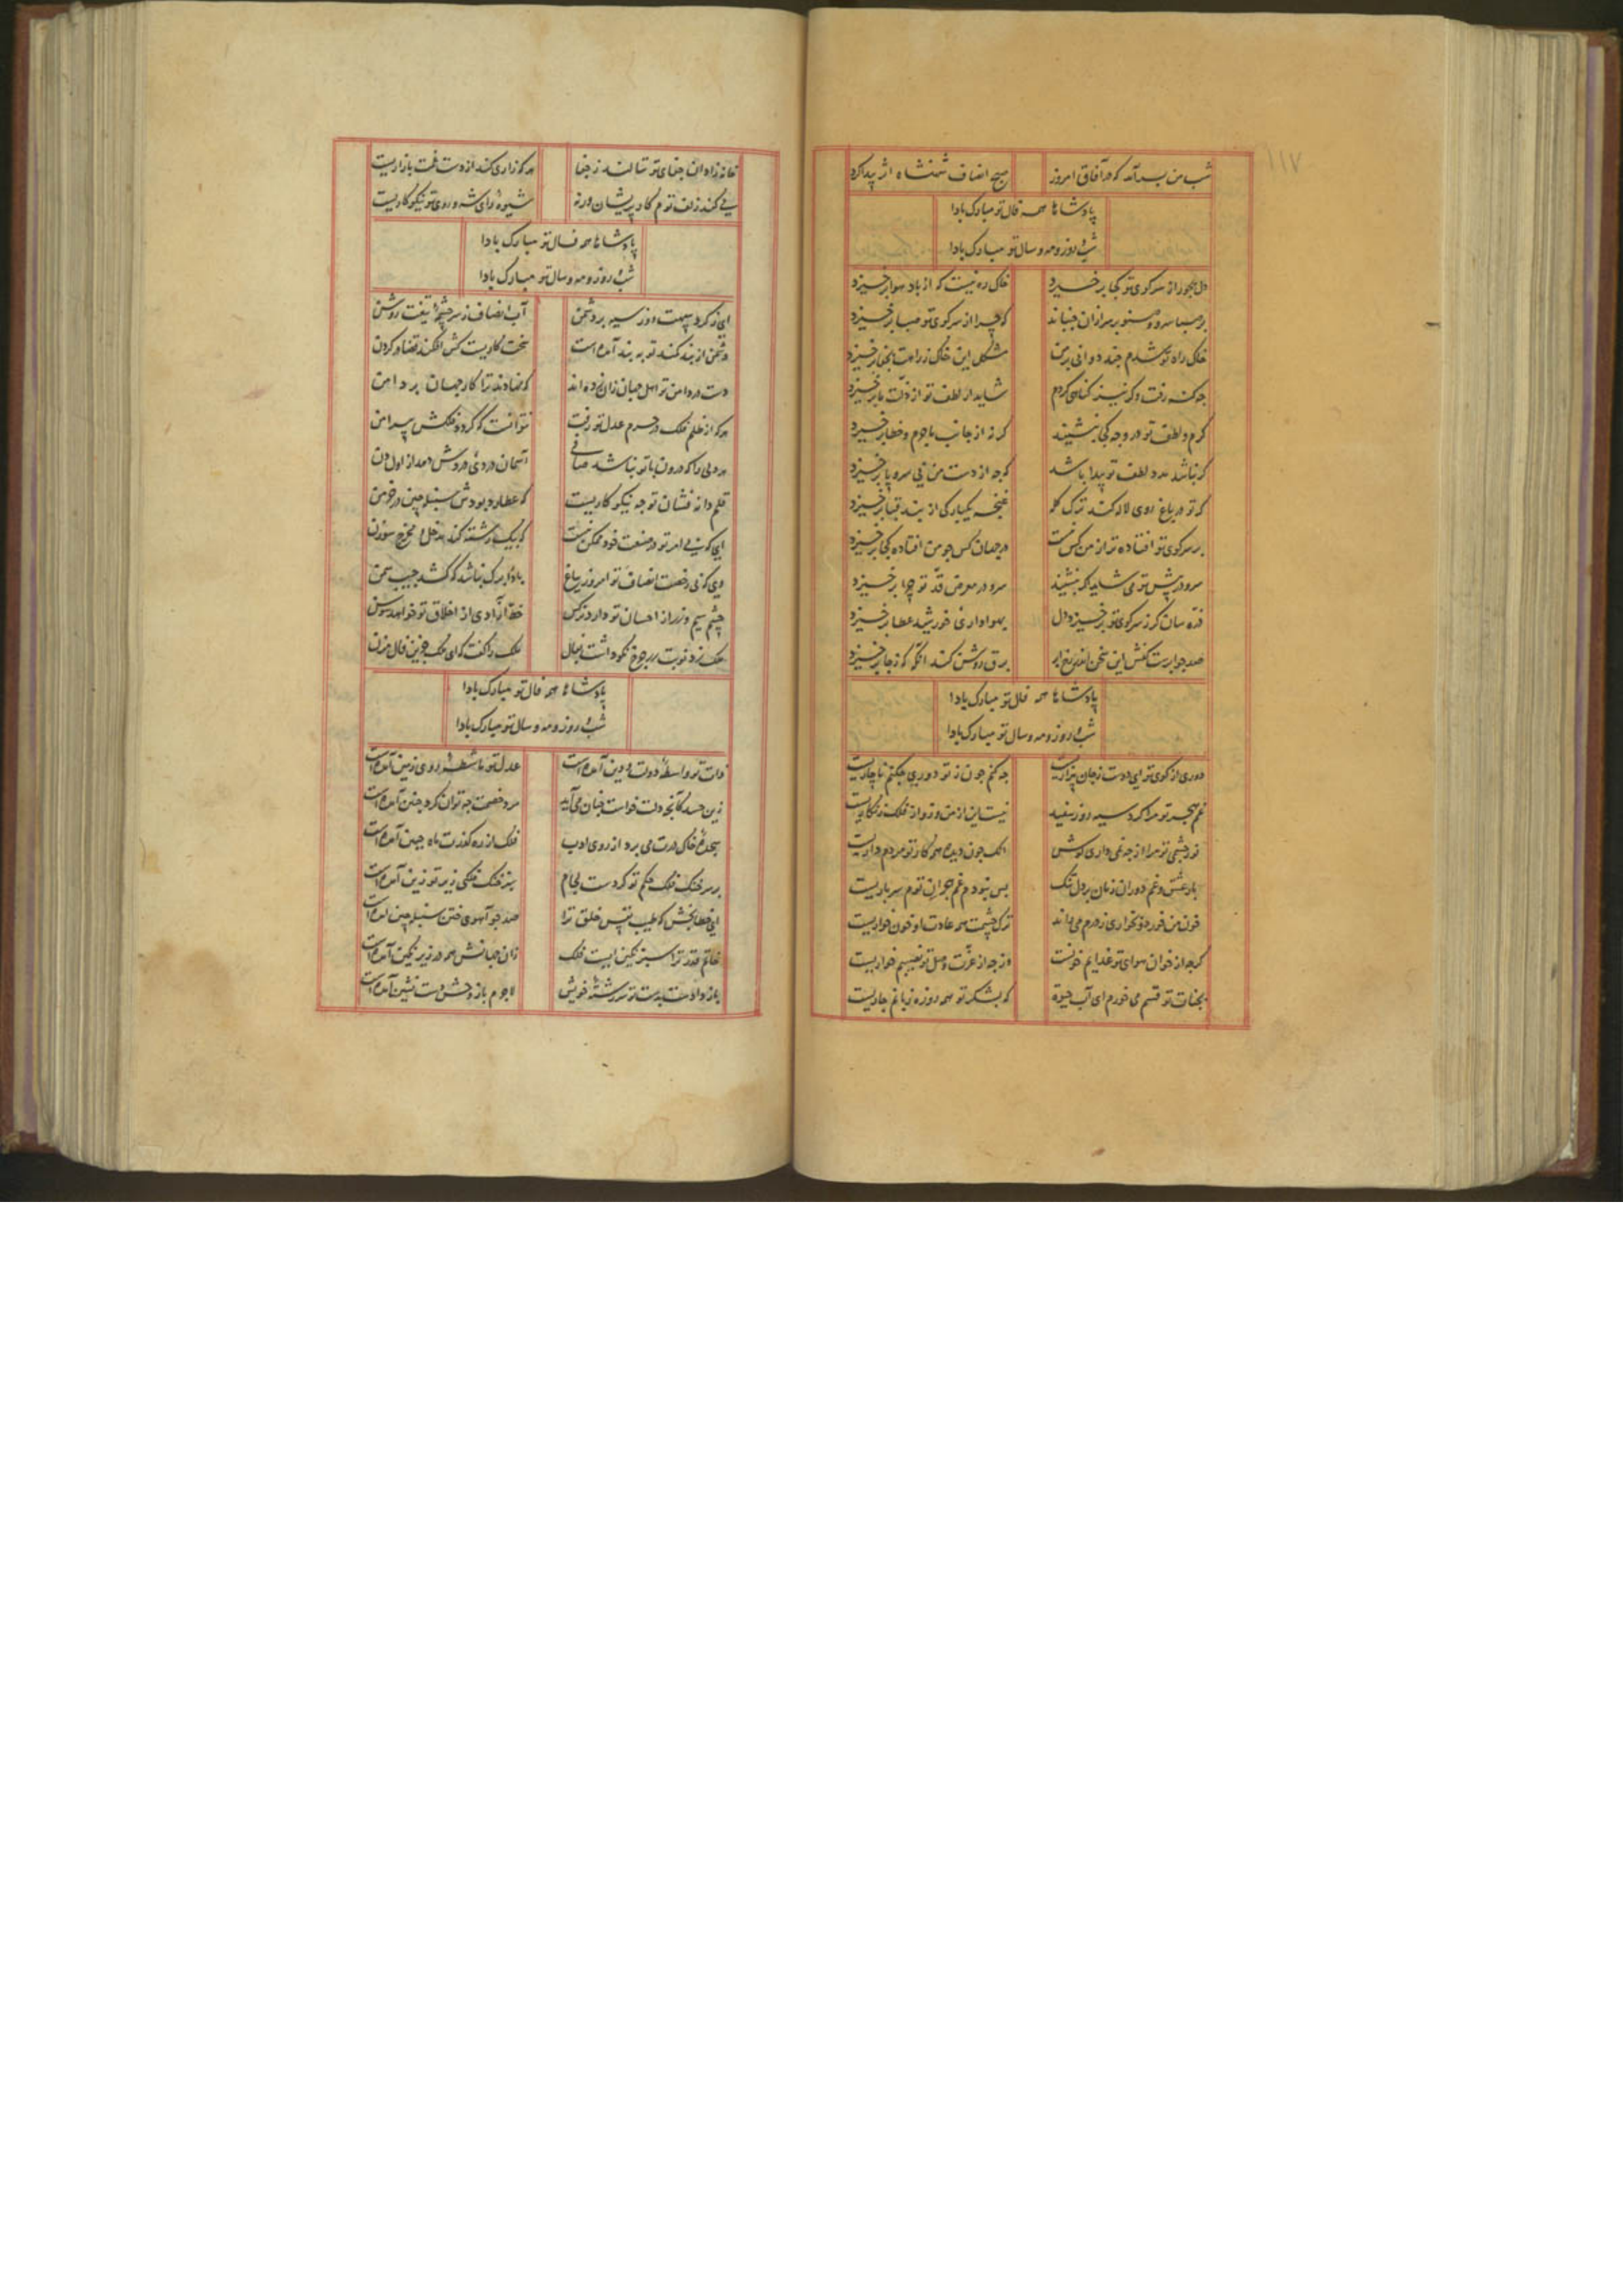 ۱۱۷
شب من بسر آمد که در آفاق امروز صبح انصاف شهنشاه اثر پیدا کرد
پادشاها همه فال تو مبارک بادا
شب و روز و مه و سال تو مبارک بادا
دل مهجور از سر کوی تو کجا برخیزد خاک ره نیست که از باد هوا برخیزد
بر صبا سرو و صنوبر سر از آن جنباند که چرا از سر کوی تو صبا برخیزد
خاک راه تو شدم چند دوانی بر من مشکل این خاک ز راهت بجفا برخیزد
چه کنه رفت و کر نیز کناهی کردم شاید از لطف تو از ذلت ما برخیزد
کرم و لطف تو در وجه کی بنشیند کر نه از جانب ما جرم و خطا برخیزد
کر نباشد مدد لطف تو پیدا باشد که چه از دست من بی سر و پا برخیزد
کر تو در باغ روی لاله کند ترک کله غنچه یکبارکی از بند قبا برخیزد
بر سر کوی تو افتاده تر از من کس نیست در جهان کس چو من افتاده کجا برخیزد
سرو در پیش تو می شاید اکر بنشیند سرو در معرض قد تو چرا برخیزد
ذره سان کر ز سر کوی تو برخیزد دل بهواداری خورشید عطا برخیزد
برق روشن کند آنکه که ز جا برخیزد
پادشاها همه فال تو مبارک بادا
شب و روز و مه و سال تو مبارک بادا
دوری از کوی تو ای دوست ز جان بیزاریست چه کنم چون ز تو دوری چکنم ناچاریست
غم هجر تو مرا کرد سیه روز سفید نیست این از من و تو از فلک زنکاریست
نور چشمی تو مرا از چه نمی داری کوش اشک چون دیده همه کار تو مردم داریست
بار عشق و غم دوران زمان بر دل تنک بس نبودم غم هجران توم سرباریست
خون من خورد و بخواری ز درم می راند ترک چشمت همه عادت او خون خواریست
کرچه از خوان هوای تو غذایم خونست ورچه از عزت وصل تو نصیبم خواریست
بجنات تو قسم می خورم ای آب حیوة که بشکر تو همه روزه زبانم جاریست
خانه زادان جفای تو ننالند ز جفا هر که زاری کند از دست غمت بازاریست
می کند زلف توم کار پریشان ورنه شیوه رای شه و روی تو نیکوکاریست
پادشاها همه فال تو مبارک بادا
شب و روز و مه و سال تو مبارک بادا
ای ز کرد سپهت روز سیه بر دشمن آب انصاف ز سرچشمه تیغت روشن
دشمن از بند کمند تو به بند آمده است سخت کاریست کش افکند قضا در کردن
دست در دامن تو اهل جهان زان زده اند که نهادند ترا کار جهان بر دامن
هر که از ظلم فلک در حرم عدل تو رفت نتوانست که کردد فلکش پیرامن
هر دلی را که درون با تو نباشد صافی آسمان دردی دردش دهد از اول دن
قلم دانه فشان تو چه نیکو کاریست که عطارد بودش سنبله چین در خرمن
ای که بی امر تو در صنعت خود ممکن نیست که بیک رشته کند مدخل و مخرج سوزن
وی که بی رخصت انصاف تو امروز بباغ باد را برک نباشد که کشد جیب سمن
چشم سیم و زر از احسان تو دارد نرکس خط آزادی از اخلاق تو خواهد سوسن
پادشاها همه فال تو مبارک بادا
شب و روز و مه و سال تو مبارک بادا
ذات تو واسطه دولت و دین آمده است عدل تو ماشطه روی زمین آمده است
زین حسد کآنچه دلت خواست چنان می آید مرد خصمت چه توان کرد چنین آمده است
سجده خاک درت می برد از روی ادب فلک از ره کذرت ماه جبین آمده است
بر سر خنک فلک حکم تو کردست لجام سبز خنک فلکی زیر تو زین آمده است
صد چو آهوی ختن سنبله چین آمده است
خاتم قدر ترا سبز نکین ایست فلک زان جهانش همه در زیر نکین آمده است
باز دادست بدست تو سر رشته خویش لاجرم باز و خش دست نشین آمده است